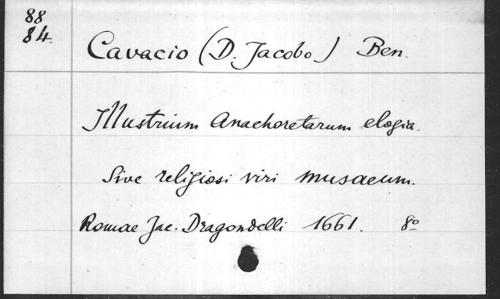 88
84.
Cavacio (D. Jacobo) Ben.
Illustrium Anachoretarum elogia.
Sive religiosi viri musaeum.
Romae Jac. Dragondelli 1661. 8º